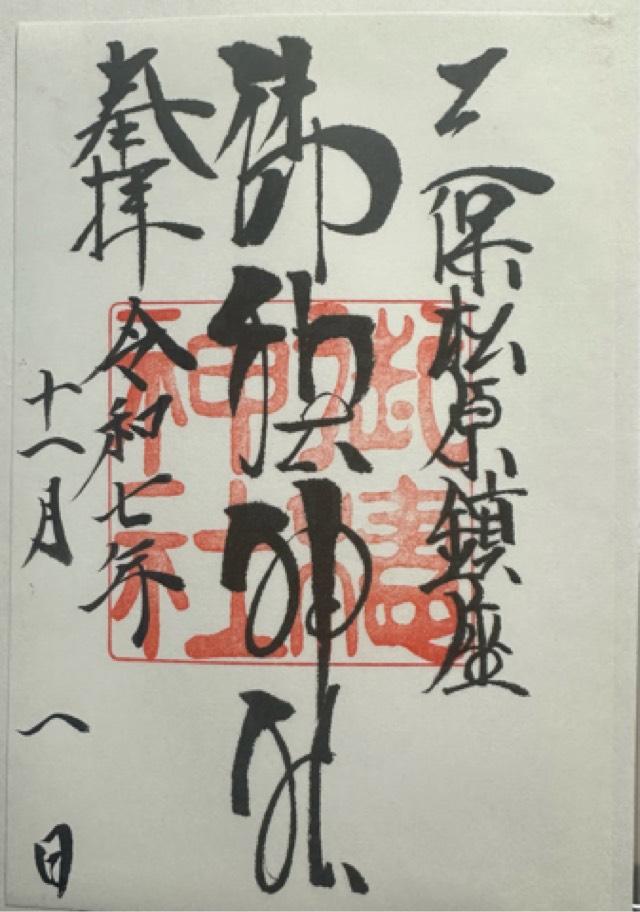 三保松原鎮座
御穂神社
奉拝 令和七年
十一月 一日
神社